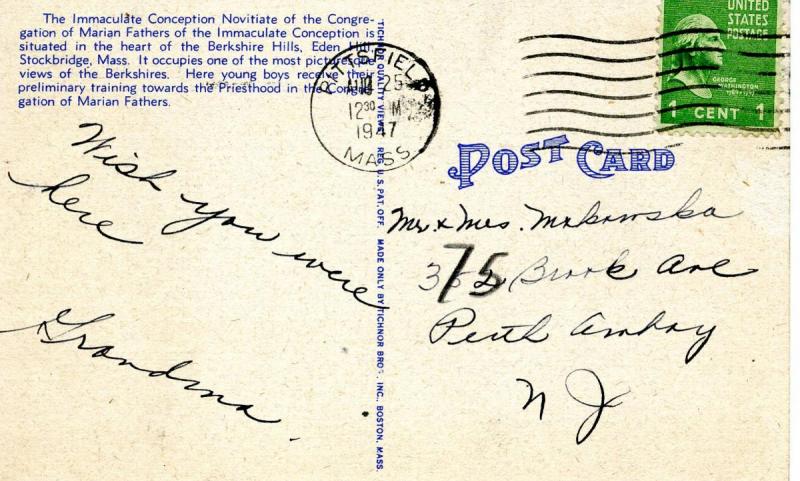 The Immaculate Conception Novitiate of the Congre-
gation of Marian Fathers of the Immaculate Conception is
situated in the heart of the Berkshire Hills, Eden Hill,
Stockbridge, Mass. It occupies one of the most picturesque
views of the Berkshires. Here young boys receive their
preliminary training towards the Priesthood in the Congre-
gation of Marian Fathers.
Wish you were
here
Grandma.
TICHNOR QUALITY VIEWS. REG. U.S. PAT. OFF. MADE ONLY BY TICHNOR BROS. INC., BOSTON, MASS.
PITTSFIELD
AUG 25
12 30 PM
1947
MASS.
UNITED
STATES
POSTAGE
GEORGE
WASHINGTON
1789-1797
1 CENT 1
POST CARD
Mr. & Mrs. Makowska
Brook Ave
75
Perth Amboy
N J